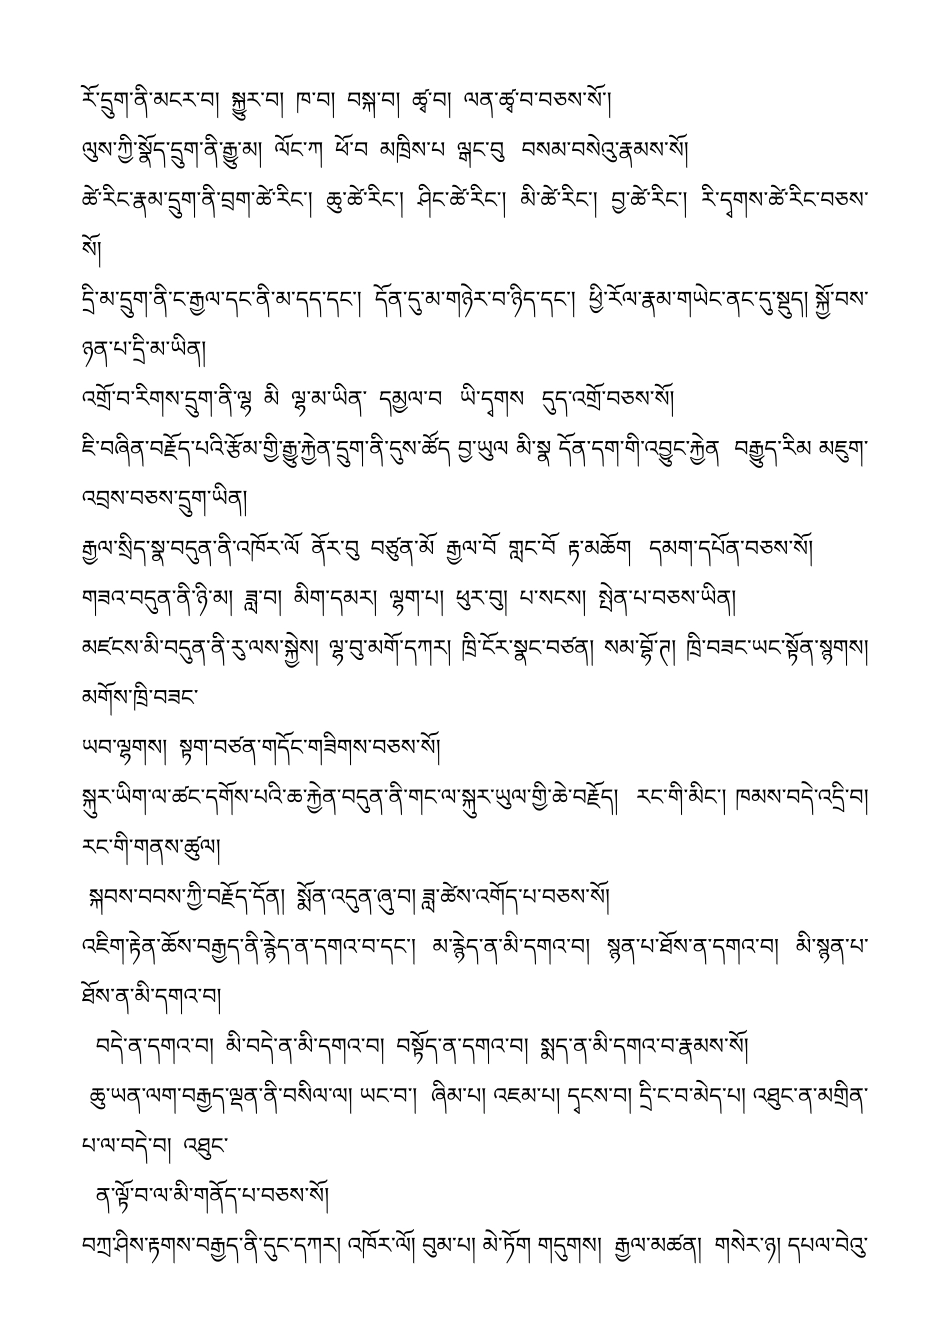 རོ་དྲུག་ནི་མངར་བ། སྐྱུར་བ། ཁ་བ། བསྐ་བ། ཚྭ་བ། ལན་ཚྭ་བ་བཅས་སོ་།
ལུས་ཀྱི་སྣོད་དྲུག་ནི་རྒྱུ་མ། ལོང་ཀ ཕོ་བ མཁྲིས་པ ལྒང་བུ བསམ་བསེའུ་རྣམས་སོ།
ཚེ་རིང་རྣམ་དྲུག་ནི་བྲག་ཚེ་རིང་། ཆུ་ཚེ་རིང་། ཤིང་ཚེ་རིང་། མི་ཚེ་རིང་། བྱ་ཚེ་རིང་། རི་དྭགས་ཚེ་རིང་བཅས་
སོ།
དྲི་མ་དྲུག་ནི་ང་རྒྱལ་དང་ནི་མ་དད་དང་། དོན་དུ་མ་གཉེར་བ་ཉིད་དང་། ཕྱི་རོལ་རྣམ་གཡེང་ནང་དུ་སྡུད། སྐྱོ་བས་
ཉན་པ་དྲི་མ་ཡིན།
འགྲོ་བ་རིགས་དྲུག་ནི་ལྷ མི ལྷ་མ་ཡིན་ དམྱལ་བ ཡི་དྭགས དུད་འགྲོ་བཅས་སོ།
ཇི་བཞིན་བརྗོད་པའི་རྩོམ་གྱི་རྒྱུ་རྐྱེན་དྲུག་ནི་དུས་ཚོད བྱ་ཡུལ མི་སྣ དོན་དག་གི་འབྱུང་རྐྱེན བརྒྱུད་རིམ མཇུག་
འབྲས་བཅས་དྲུག་ཡིན།
རྒྱལ་སྲིད་སྣ་བདུན་ནི་འཁོར་ལོ ནོར་བུ བཙུན་མོ རྒྱལ་བོ གླང་བོ རྟ་མཆོག དམག་དཔོན་བཅས་སོ།
གཟའ་བདུན་ནི་ཉི་མ། ཟླ་བ། མིག་དམར། ལྷག་པ། ཕུར་བུ། པ་སངས། སྤེན་པ་བཅས་ཡིན།
མཛངས་མི་བདུན་ནི་རུ་ལས་སྐྱེས། ལྷ་བུ་མགོ་དཀར། ཁྲི་ངོར་སྣང་བཙན། སམ་བྷོ་ཊ། ཁྲི་བཟང་ཡང་སྟོན་སྙགས།
མགོས་ཁྲི་བཟང་
ཡབ་ལྷགས། སྟག་བཙན་གདོང་གཟིགས་བཅས་སོ།
སྐུར་ཡིག་ལ་ཚང་དགོས་པའི་ཆ་རྐྱེན་བདུན་ནི་གང་ལ་སྐུར་ཡུལ་གྱི་ཆེ་བརྗོད། རང་གི་མིང་། ཁམས་བདེ་འདྲི་བ།
རང་གི་གནས་ཚུལ།
སྐབས་བབས་ཀྱི་བརྗོད་དོན། སྨོན་འདུན་ཞུ་བ། ཟླ་ཚེས་འགོད་པ་བཅས་སོ།
འཇིག་རྟེན་ཆོས་བརྒྱད་ནི་རྙེད་ན་དགའ་བ་དང་། མ་རྙེད་ན་མི་དགའ་བ། སྙན་པ་ཐོས་ན་དགའ་བ། མི་སྙན་པ་
ཐོས་ན་མི་དགའ་བ།
བདེ་ན་དགའ་བ། མི་བདེ་ན་མི་དགའ་བ། བསྟོད་ན་དགའ་བ། སྨད་ན་མི་དགའ་བ་རྣམས་སོ།
ཆུ་ཡན་ལག་བརྒྱད་ལྡན་ནི་བསིལ་ལ། ཡང་བ་། ཞིམ་པ། འཇམ་པ། དྭངས་བ། དྲི་ང་བ་མེད་པ། འཐུང་ན་མགྲིན་
པ་ལ་བདེ་བ། འཐུང་
ན་ལྟོ་བ་ལ་མི་གནོད་པ་བཅས་སོ།
བཀྲ་ཤིས་རྟགས་བརྒྱད་ནི་དུང་དཀར། འཁོར་ལོ། བུམ་པ། མེ་ཏོག གདུགས། རྒྱལ་མཚན། གསེར་ཉ། དཔལ་བེའུ་